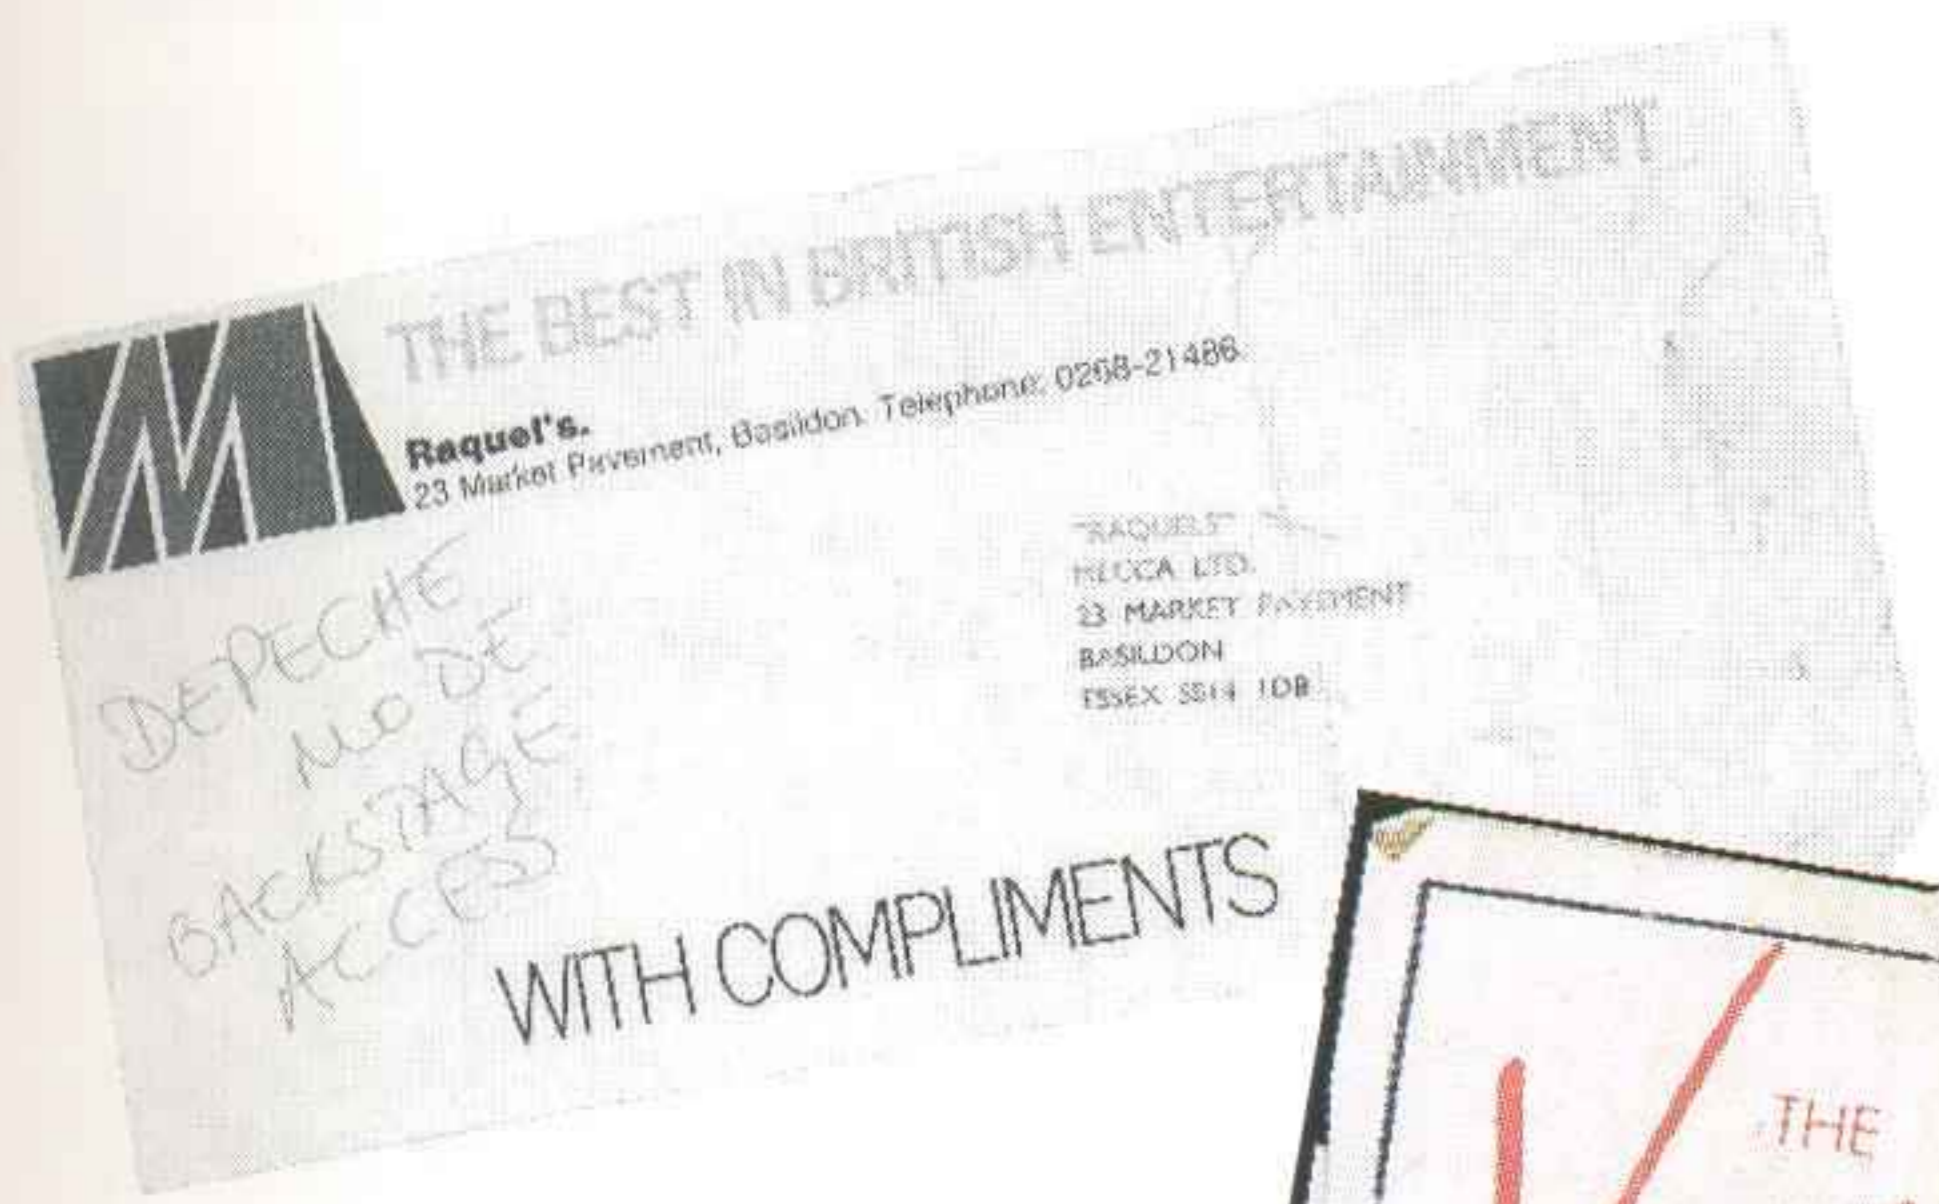 THE BEST IN BRITISH ENTERTAINMENT
Raquel's.
23 Market Pavement, Basildon. Telephone: 0268-21486.
"RAQUELS"
MECCA LTD.
23 MARKET PAVEMENT
BASILDON
ESSEX SS14 1DB
DEPECHE
MODE
BACKSTAGE
ACCESS
WITH COMPLIMENTS
THE